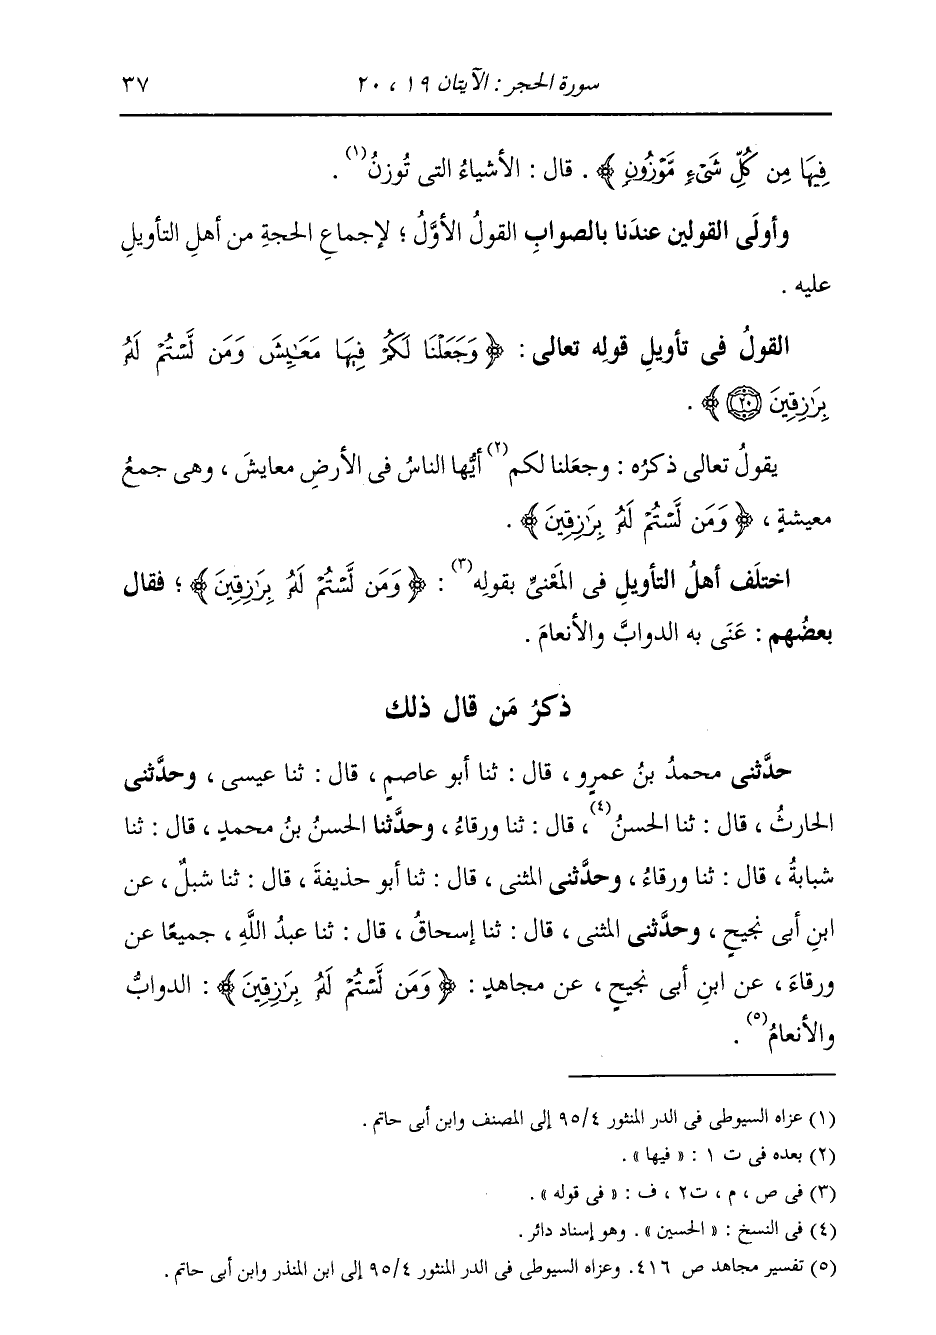 سورة الحجر : الآيتان ١٩ ، ٢٠ ٣٧
فِيهَا مِن كُلِّ شَىْءٍ مَّوْزُونٍ ﴾ . قال : الأشياءُ التى تُوزنُ(١) .
وأولَى القولين عندَنا بالصوابِ القولُ الأوَّلُ ؛ لإجماعِ الحجةِ من أهلِ التأويلِ
عليه .
القولُ فى تأويلِ قولِه تعالى : ﴿ وَجَعَلْنَا لَكُمْ فِيهَا مَعَٰيِشَ وَمَن لَّسْتُمْ لَهُۥ
بِرَٰزِقِينَ ٢٠ ﴾ .
يقولُ تعالى ذكرُه : وجعَلنا لكم(٢) أيُّها الناسُ فى الأرضِ معايشَ ، وهى جمعُ
معيشةٍ ، ﴿ وَمَن لَّسْتُمْ لَهُۥ بِرَٰزِقِينَ ﴾ .
اختلَف أهلُ التأويلِ فى المَعْنىِّ بقولِه(٣) : ﴿ وَمَن لَّسْتُمْ لَهُۥ بِرَٰزِقِينَ ﴾ ؛ فقال
بعضُهم : عَنَى به الدوابَّ والأنعامَ .
ذكرُ مَن قال ذلك
حدَّثنى محمدُ بنُ عمرٍو ، قال : ثنا أبو عاصمٍ ، قال : ثنا عيسى ، وحدَّثنى
الحارثُ ، قال : ثنا الحسنُ(٤) ، قال : ثنا ورقاءُ ، وحدَّثنا الحسنُ بنُ محمدٍ ، قال : ثنا
شبابةُ ، قال : ثنا ورقاءُ ، وحدَّثنى المثنى ، قال : ثنا أبو حذيفةَ ، قال : ثنا شبلٌ ، عن
ابنِ أبى نجيحٍ ، وحدَّثنى المثنى ، قال : ثنا إسحاقُ ، قال : ثنا عبدُ اللَّهِ ، جميعًا عن
ورقاءَ ، عن ابنِ أبى نجيحٍ ، عن مجاهدٍ : ﴿ وَمَن لَّسْتُمْ لَهُۥ بِرَٰزِقِينَ ﴾ : الدوابُّ
والأنعامُ(٥) .
(١) عزاه السيوطى فى الدر المنثور ٩٥/٤ إلى المصنف وابن أبى حاتم .
(٢) بعده فى ت ١ : « فيها » .
(٣) فى ص ، م ، ت٢ ، ف : « فى قوله » .
(٤) فى النسخ : « الحسين » . وهو إسناد دائر .
(٥) تفسير مجاهد ص ٤١٦. وعزاه السيوطى فى الدر المنثور ٩٥/٤ إلى ابن المنذر وابن أبى حاتم .